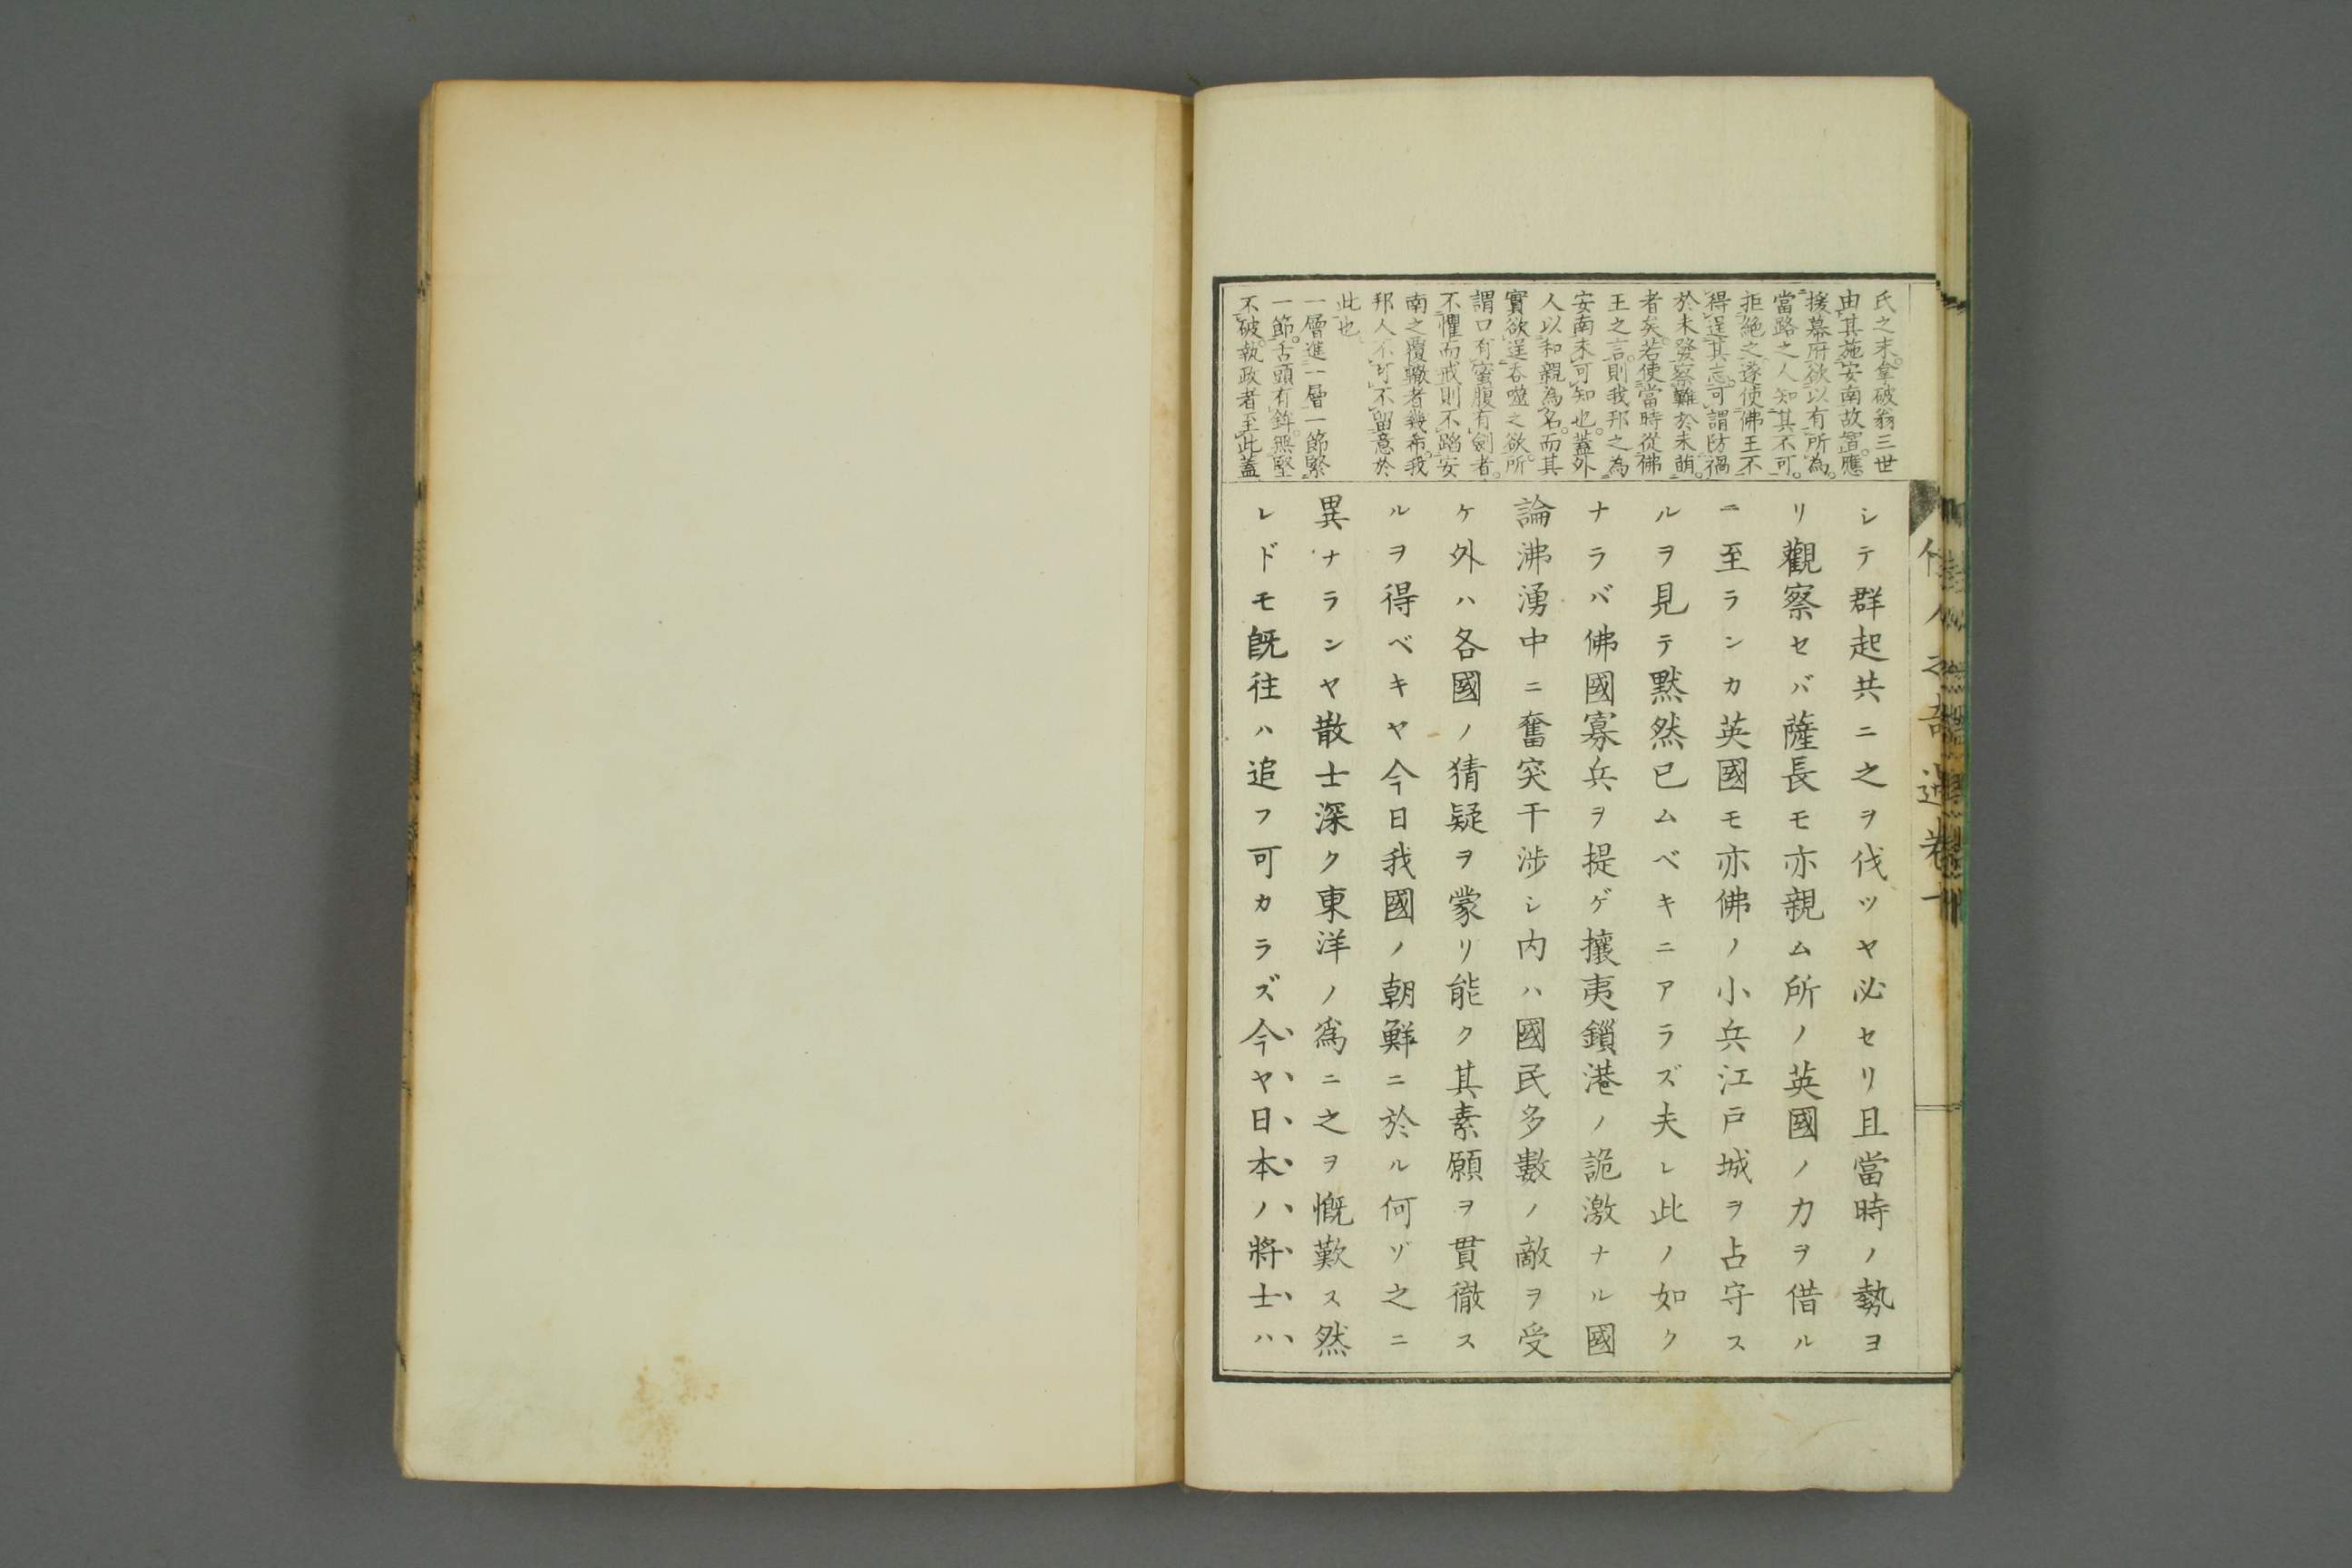 氏之末。拿破翁三世
由其施安南故智。應
援幕府欲以有所為。
當路之人知其不可。
拒絶之。遂使佛王不
得逞其志。可謂防禍
於未發察難於未萌。
者矣。若使當時從佛
王之言。則我邦之為
安南未可知也。蓋外
人以和親為名。而其
實欲逞吞噬之欲。所
謂口有蜜腹有劍者。
不懼而戒則不蹈安
南之覆轍者幾希。我
邦人不可不留意於
此也。
一層進一層一節緊
一節。舌頭有鋒。無堅
不破。執政者至此蓋
シテ群起共ニ之ヲ伐ツヤ必セリ且當時ノ勢ヨ
リ觀察セバ薩長モ亦親ム所ノ英國ノ力ヲ借ル
ニ至ランカ英國モ亦佛ノ小兵江戸城ヲ占守ス
ルヲ見テ黙然已ムベキニアラズ夫レ此ノ如ク
ナラバ佛國寡兵ヲ提ゲ攘夷鎖港ノ詭激ナル國
論沸湧中ニ奮突干渉シ内ハ國民多數ノ敵ヲ受
ケ外ハ各國ノ猜疑ヲ蒙リ能ク其素願ヲ貫徹ス
ルヲ得ベキヤ今日我國ノ朝鮮ニ於ル何ゾ之ニ
異ナランヤ散士深ク東洋ノ爲ニ之ヲ慨歎ス然
レドモ既往ハ追フ可カラズ今ヤ日本ノ將士ハ